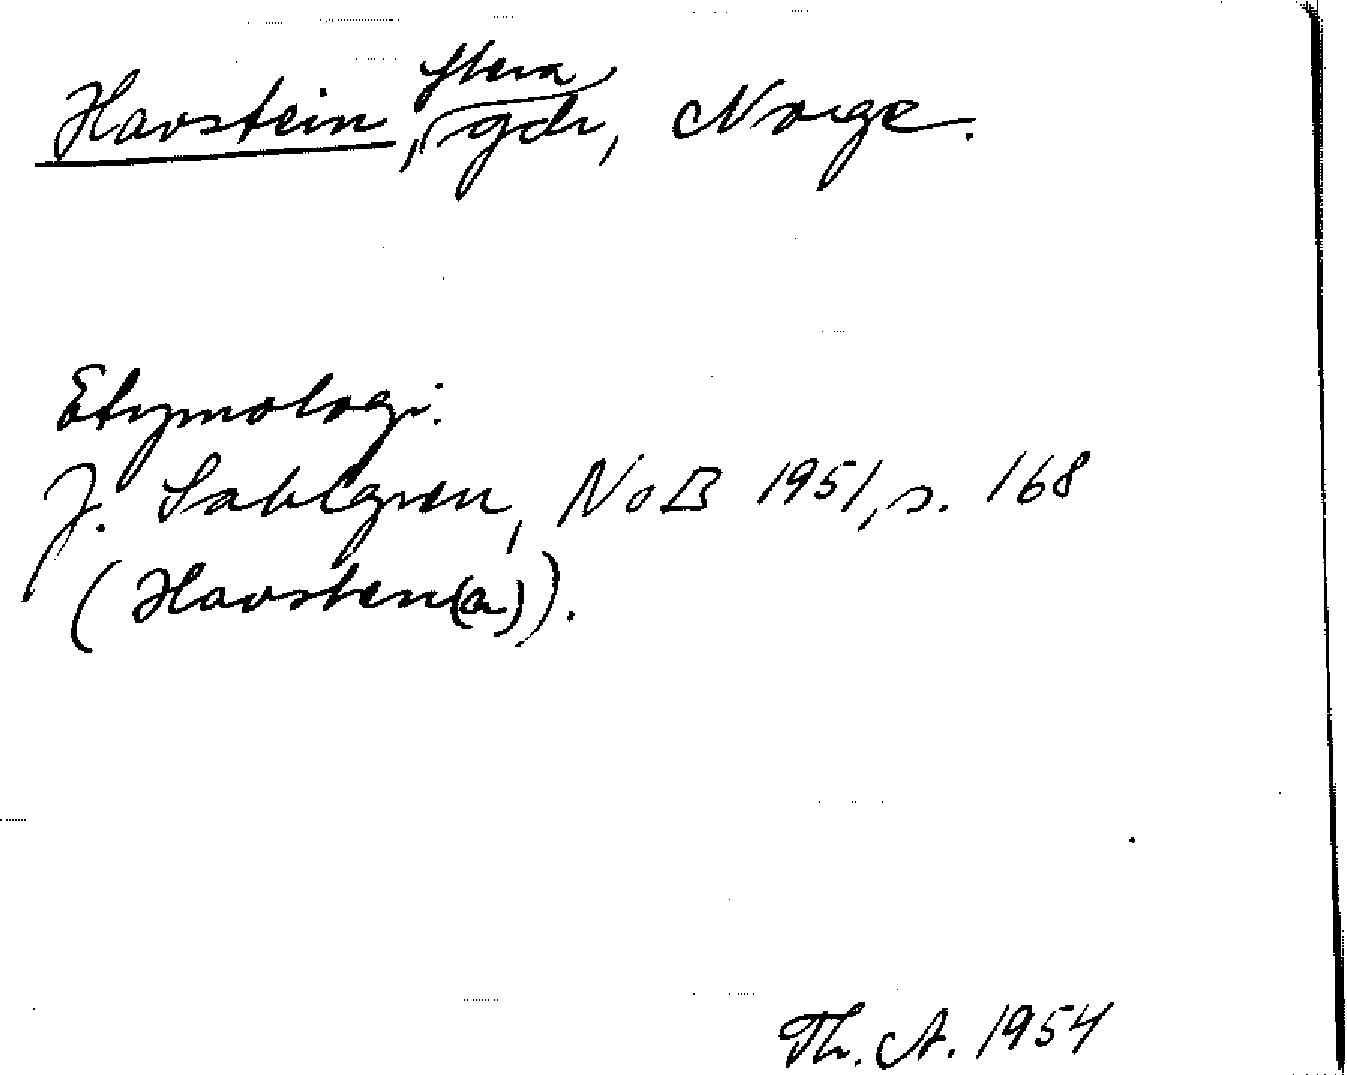 Havstein, flera gdr, Norge.
Etymologi.
J. Sahlgren, NoB 1951, s. 168
(Havsten(a)).
Th. A. 1954